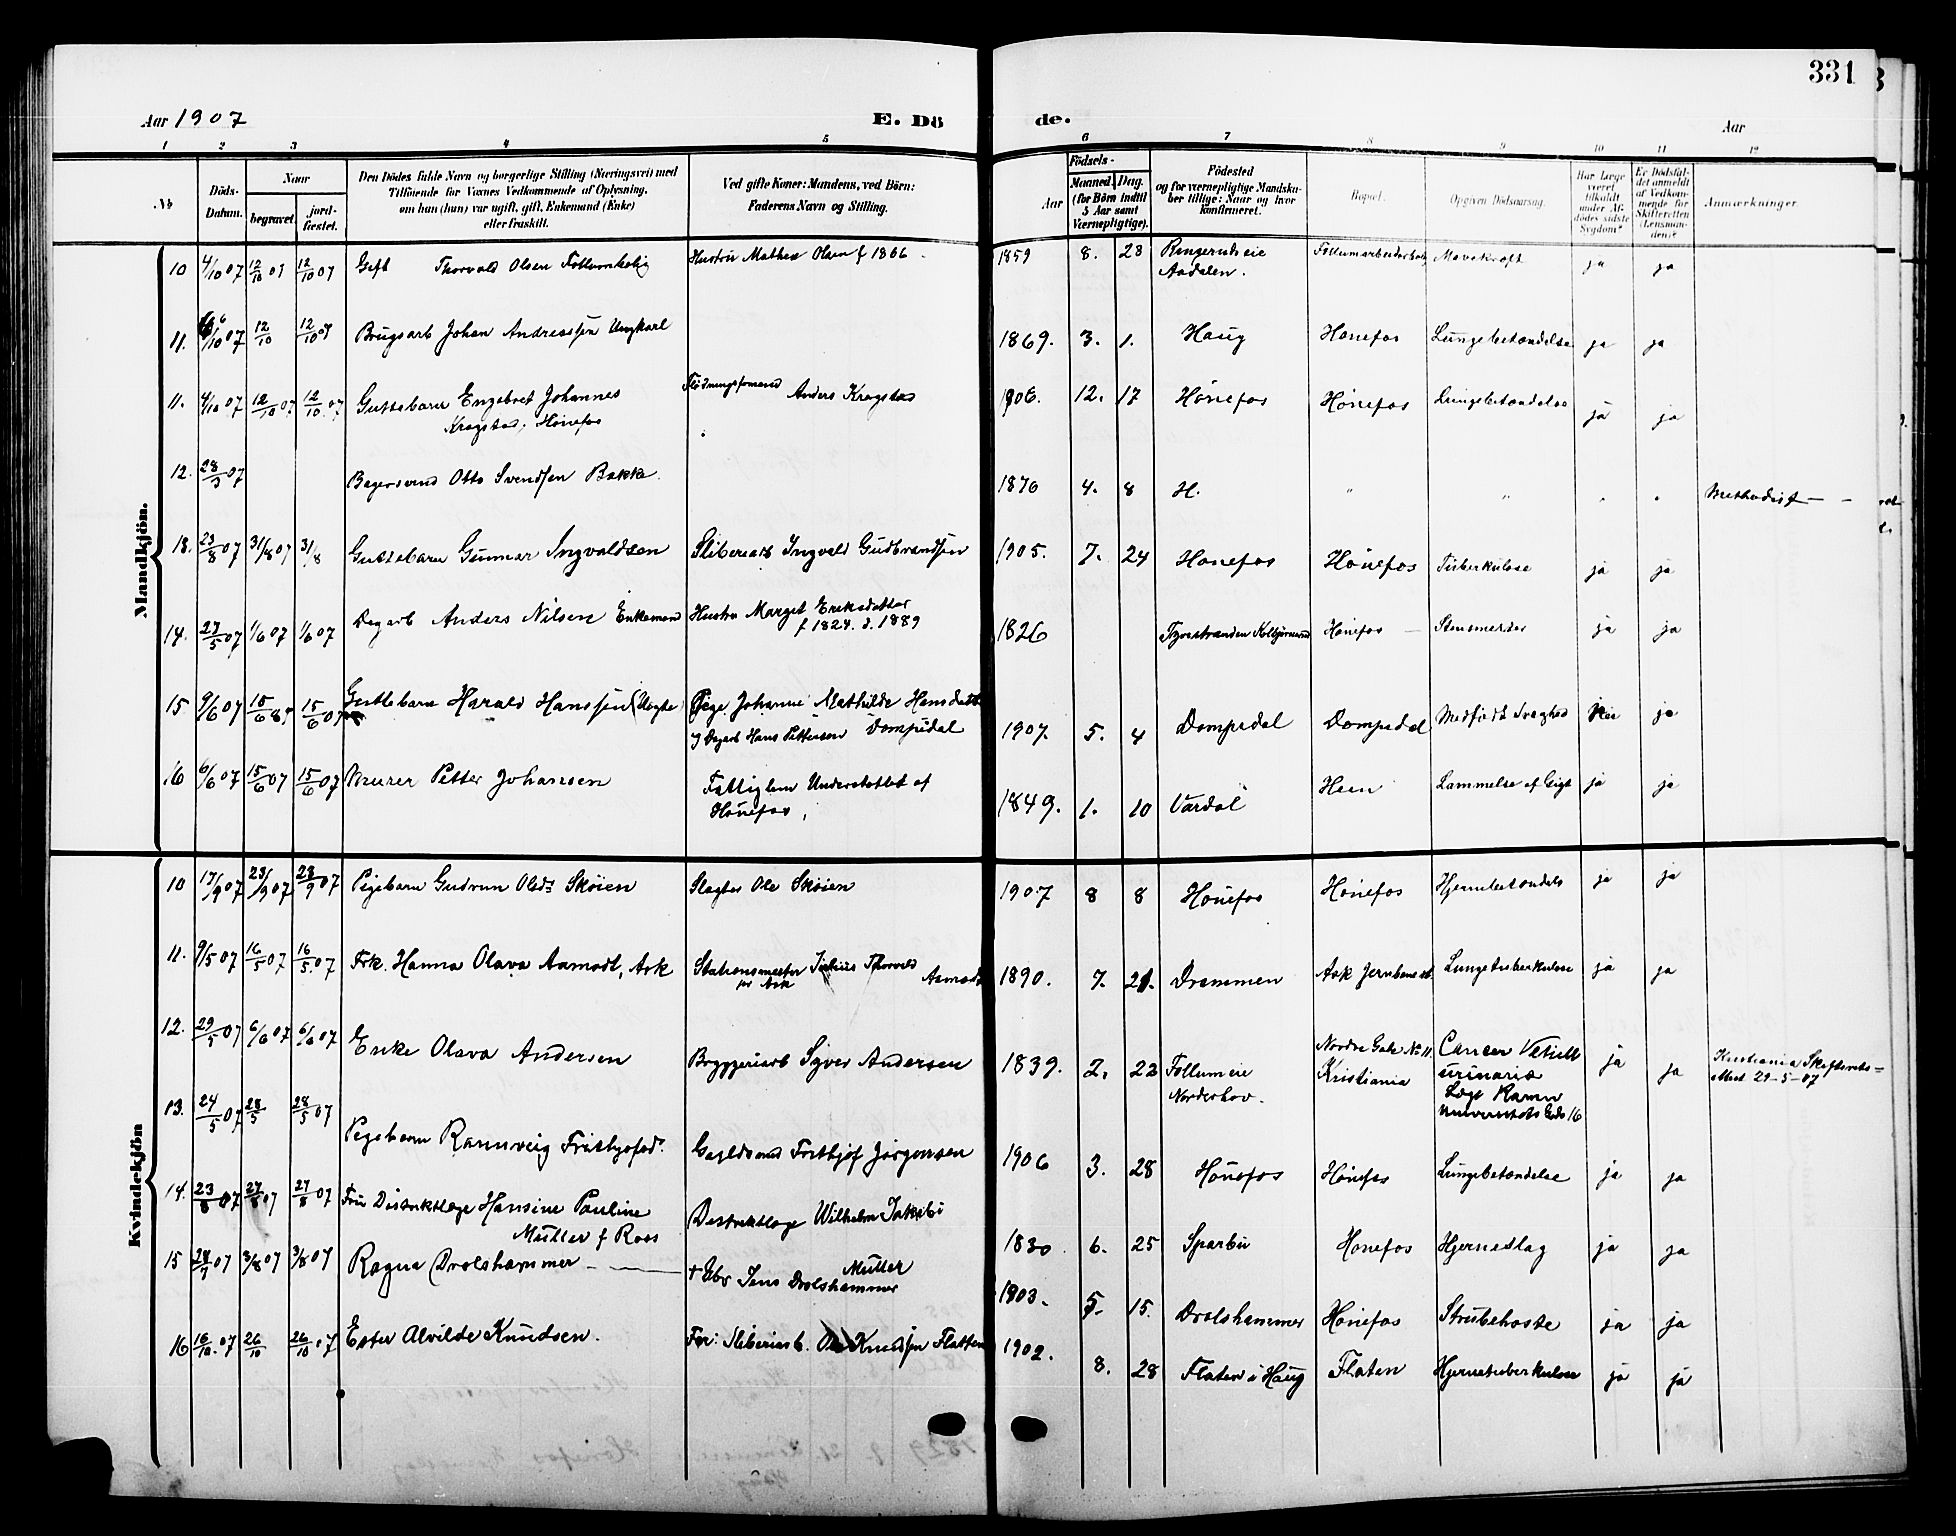 331
Aar 1907 E. Dö de. Aar
1 2 3 4 5 6 7 8 9 10 11 12
No
Döds-Datum.
Naar
begravet.
jord-fæstet.
Den Dödes fulde Navn og borgerlige Stilling (Næringsvei) med
Tilföiende for Voxnes Vedkommende af Oplysning,
om han (hun) var ugift, gift, Enkemand (Enke)
eller fraskilt.
Ved gifte Koner: Mandens, ved Börn:
Faderens Navn og Stilling.
Födsels-
Aar
Maaned. Dag.
(for Börn indtil
5 Aar samt
Værnepligtige).
Födested
og for værnepligtige Mandska-
ber tillige: Naar og hvor
konfirmeret.
Bopæl.
Opgiven Dödsaarsag.
Har Læge
været
tilkaldt
under Af-
dödes sidste
Sygdom?
Er Dödsfal-
det anmeldt
af Vedkom-
mende for
Skifteretten
(Lensman-
den)?
Anmærkninger.
Mandkjön.
10 4/10 07 12/10 07 12/10 07 Gift Thorvald Olsen Follumbolig Hustru Mathea Olsen f 1866 1859 8. 23 Ringerudseie
Aadalen. Follumarbeiderbolig Mavekræft ja ja
11. 6/10 07 12/10 12/10 07 Brugsarb Johan Andreassen Ungkarl 1869. 3. 1. Haug Hønefos Lungebetændelse ja ja
11. 4/10 07 12/10 07 12/10 07 Guttebarn Engebret Johannes
Kragstad, Hønefos Flødningsformand Anders Kragstad 1906. 12. 17 Hønefos Hønefos Lungebetændelse ja ja
12. 28/3 07 Bagersvend Otto Svendsen Bakke. 1870 4. 8 H. " " " " Methodist
13. 23/8 07 31/8 07 31/8 Guttebarn Gunnar Ingvaldsen Sliberiarb Ingvald Gudbrandsen 1905. 7. 24 Hønefos Hønefos Tuberkulose ja ja
14. 27/5 07 1/6 07 1/6 07 Dagarb Anders Nilsen Enkemand Hustru Marget Eriksdatter
f 1824. d. 1889 1826 Tyristranden Hønefos Stensmerter ja ja
15 9/6 07 15/6 07 15/6 07 Guttebarn Harald Hanssen (Uegte) Pige Johanne Mathilde Hansdatt
og Dagarb Hans Pettersen Dompidal 1907. 5. 4 Dompidal Dompidal Medfødt Svaghed Nei ja
16 6/6 07 15/6 07 15/6 07 Murer Petter Johansen Fattiglem Understøttet af
Hønefos, 1849. 1. 10 Vardal Heen Lammelse af Gigt ja ja
Kvindekjön
10 17/9 07 23/9 07 23/9 07 Pigebarn Gudrun Olsdt Skøien Slagter Ole Skøien 1907 8 8 Hønefos Hønefos Hjernebetændels ja ja
11. 9/5 07 16/5 07 16/5 07 Frk. Hanna Olava Aamodt, Ask Stationsmester Julius Thorvald Aamodt
på Ask 1890. 7. 21. Drammen Ask Jernbanest. Lungetuberkulose ja ja
12. 29/5 07 6/6 07 6/6 07 Enke Olava Andersen Bryggeriarb Syver Andersen 1839. 2. 22 Follumeie
Norderhov. Nordre Gate No 11.
Kristiania Cancer Vesicæ
urinariæ
Læge
Universitets Gade 16 ja ja Kristiania Skifteret
29-5-07
13. 24/5 07 28/5 28/5 07 Pigebarn Rannveig Frithjofsd. Frithjof Jørgensen 1906 3. 28 Hønefos Hønefos Lungebetændelse ja ja
14. 23/8 07 27/8 07 27/8 07 Frue Distriktslæge Hansine Pauline
Müller f Roos Distriktslæge Wilhelm Jakobi
Müller 1830 6. 25 Sparbu Hønefos Hjerneslag ja ja
15 28/7 07 3/8 07 3/8 07 Ragna Drolshammer + Gbr Jens Drolshammer 1903. 5. 15. Drolshammer Hønefos Strubehoste ja ja
16 16/10 07 26/10 26/10 07 Ester Alvilde Knudsen. Far: Sliberiarb. Ole Knudsen Flatten 1902. 8. 28 Flaten i Haug Flaten Hjernetuberkulose ja ja